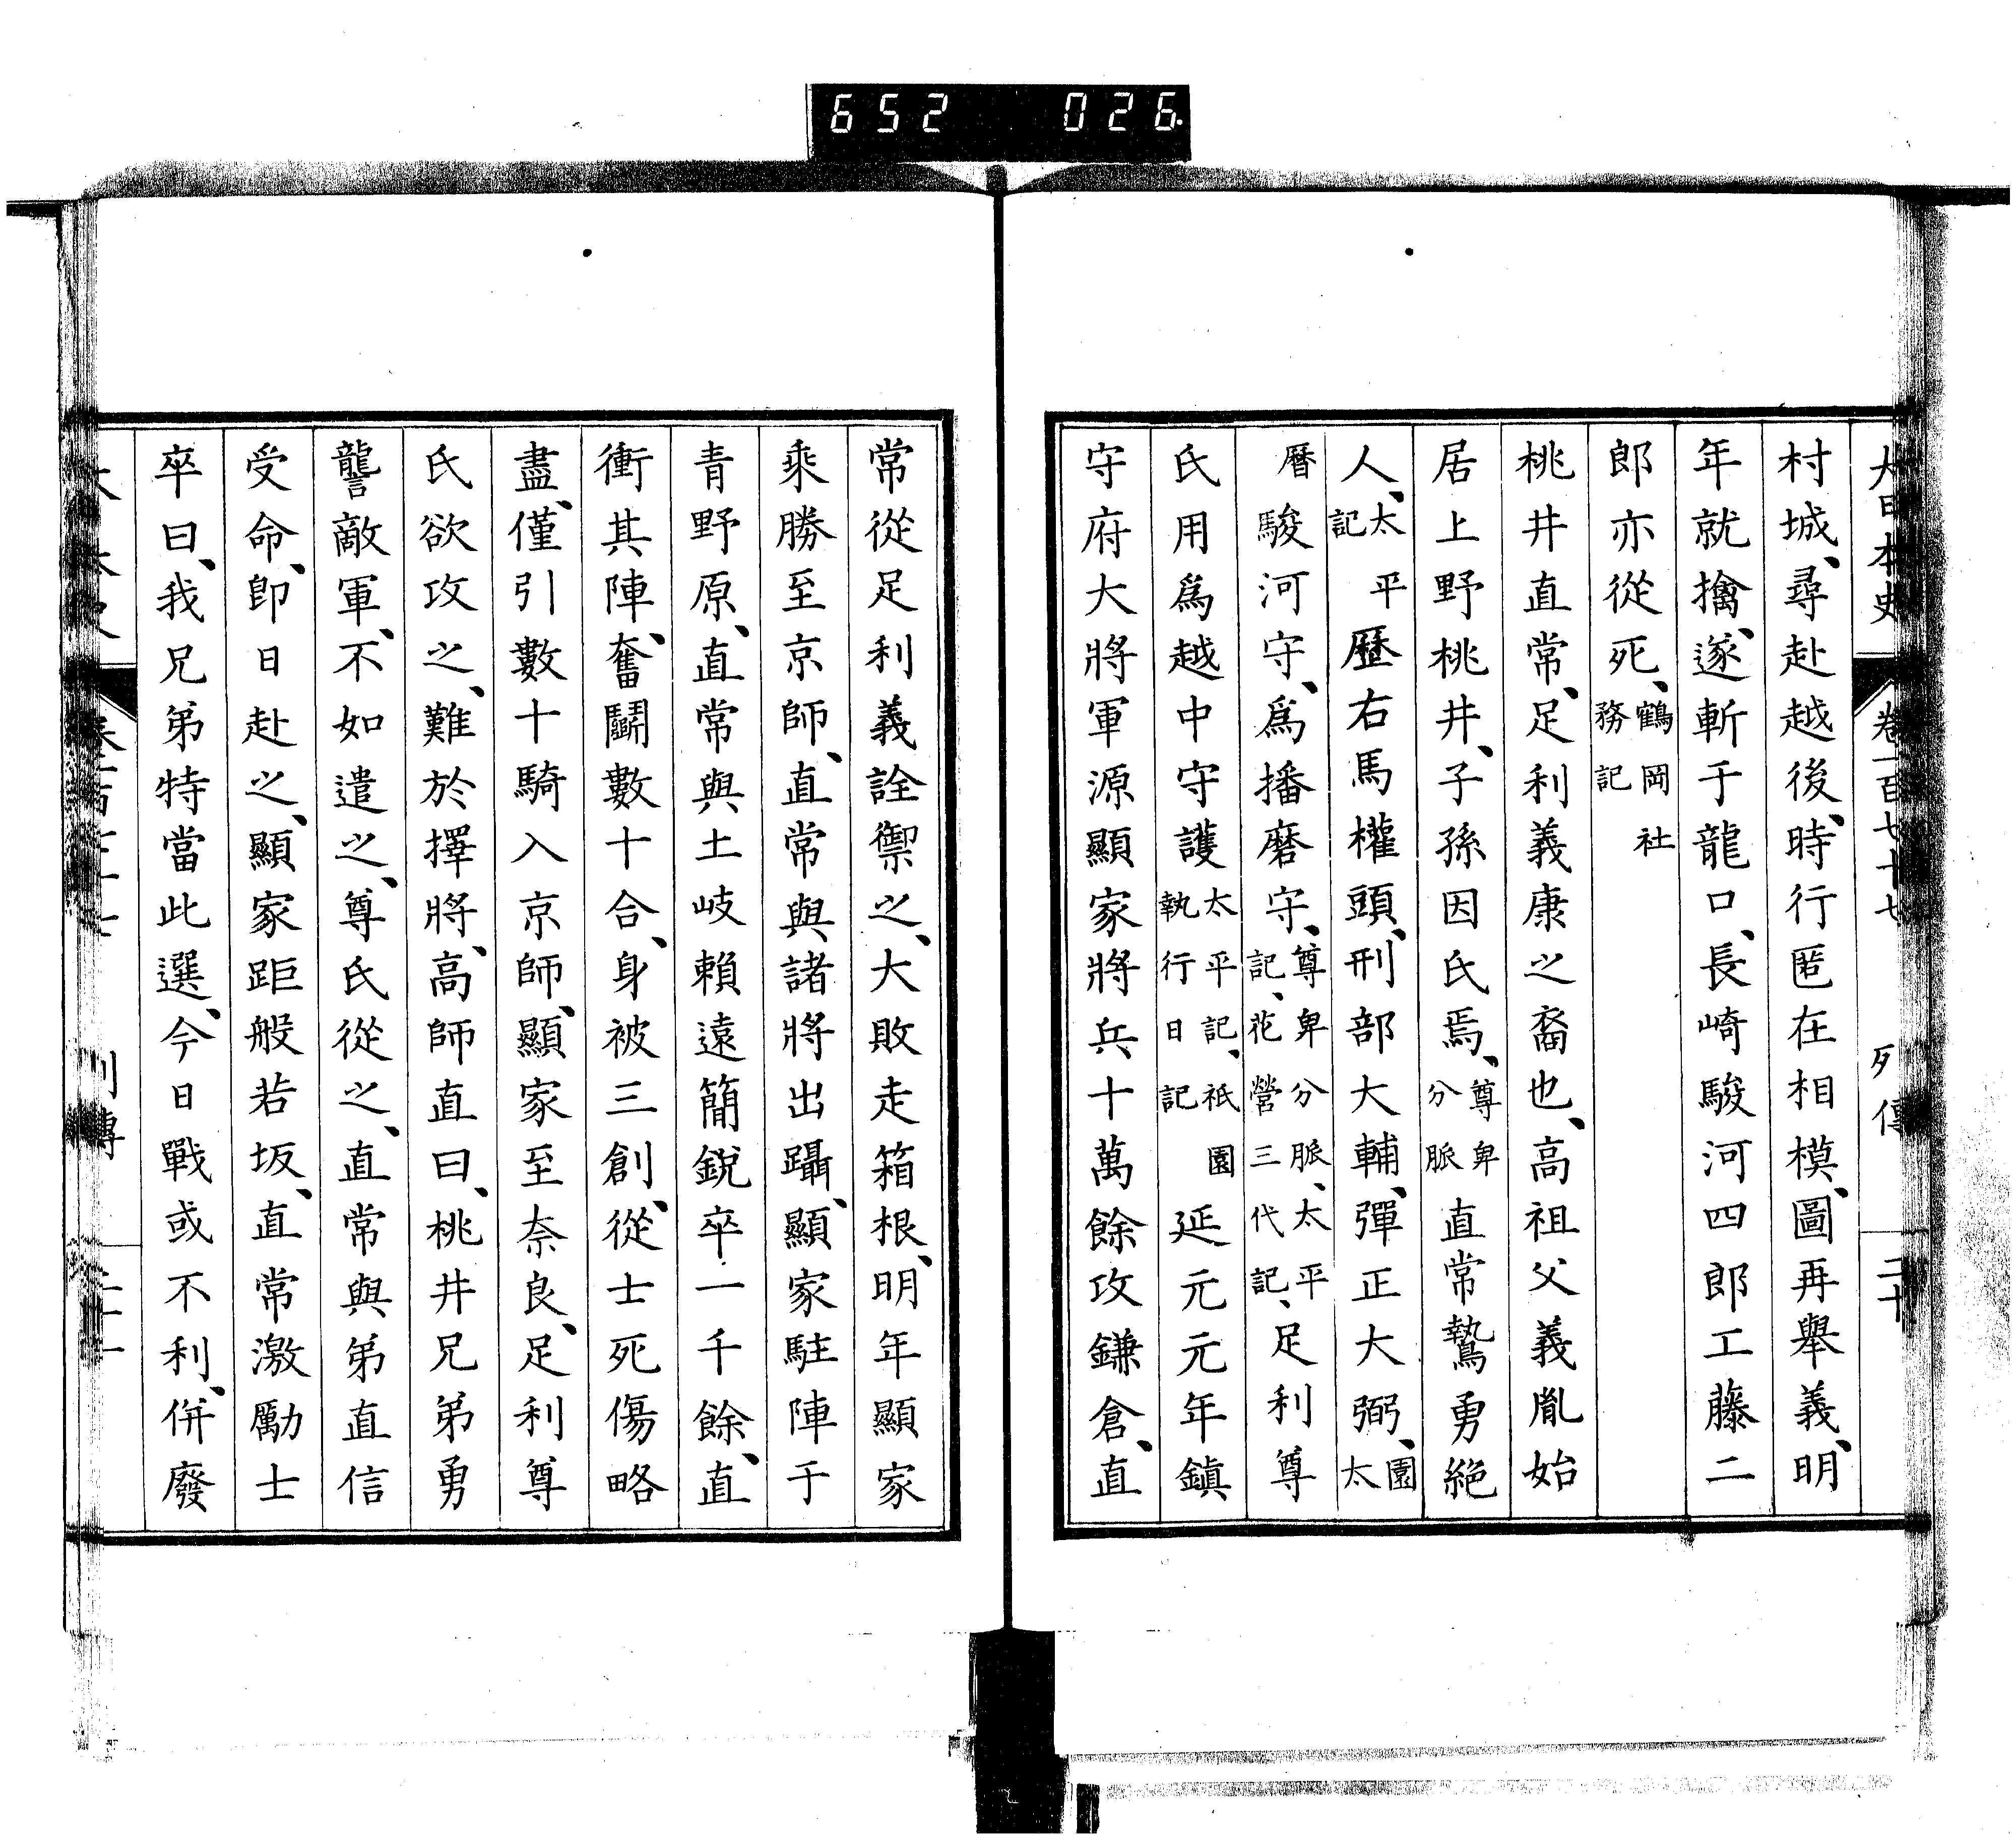 652 026
大日本史 卷一百七十七 列傳 二十
村城、尋赴越後、時行匿在相模、圖再舉義、明
年就擒、遂斬于龍口、長崎駿河四郎工藤二
郎亦從死、鶴岡社務記
桃井直常、足利義康之裔也、高祖父義胤始
居上野桃井、子孫因氏焉、尊卑分脈直常鷙勇絕
人、太平記歷右馬權頭、刑部大輔、彈正大弼、園太
曆駿河守、爲播磨守、尊卑分脈、太平記、花營三代記、足利尊
氏用爲越中守護太平記、祇園執行日記延元元年鎮
守府大將軍源顯家將兵十萬餘攻鎌倉、直
常從足利義詮禦之、大敗走箱根、明年顯家
乘勝至京師、直常與諸將出躡、顯家駐陣于
青野原、直常與土岐賴遠簡銳卒一千餘、直
衝其陣、奮鬬數十合、身被三創、從士死傷略
盡、僅引數十騎入京師、顯家至奈良、足利尊
氏欲攻之、難於擇將、高師直曰、桃井兄弟勇
讋敵軍、不如遣之、尊氏從之、直常與弟直信
受命、卽日赴之、顯家距般若坂、直常激勵士
卒曰、我兄弟特當此選、今日戰或不利、併廢
列傳